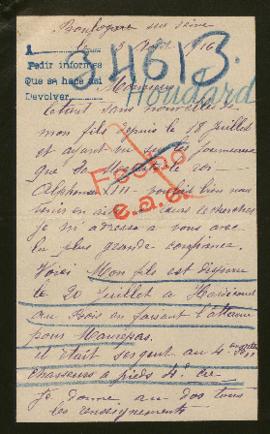 Boulogne sur Seine
le 3 1916
34613
Houdard
1
Pedir informes
Que se hace así
Devolver
Monsieur
Etant sans nouvelles de
mon fils depuis le 18 Juillet
et ayant vu sur les journeaux
que sa Majesté le roi
Alphonse XIII voulait bien nous
venir en aide recherches
je m'adresse a vous avec
la plus grande confiance.
Voici Mon fils est disparu
le 20 Juillet a
au Bois en faisant l'attaque
pour Maurepas.
il était sergent au 4e
chasseurs a pieds 4e Cie
Je donne au dos tous
les renseignements